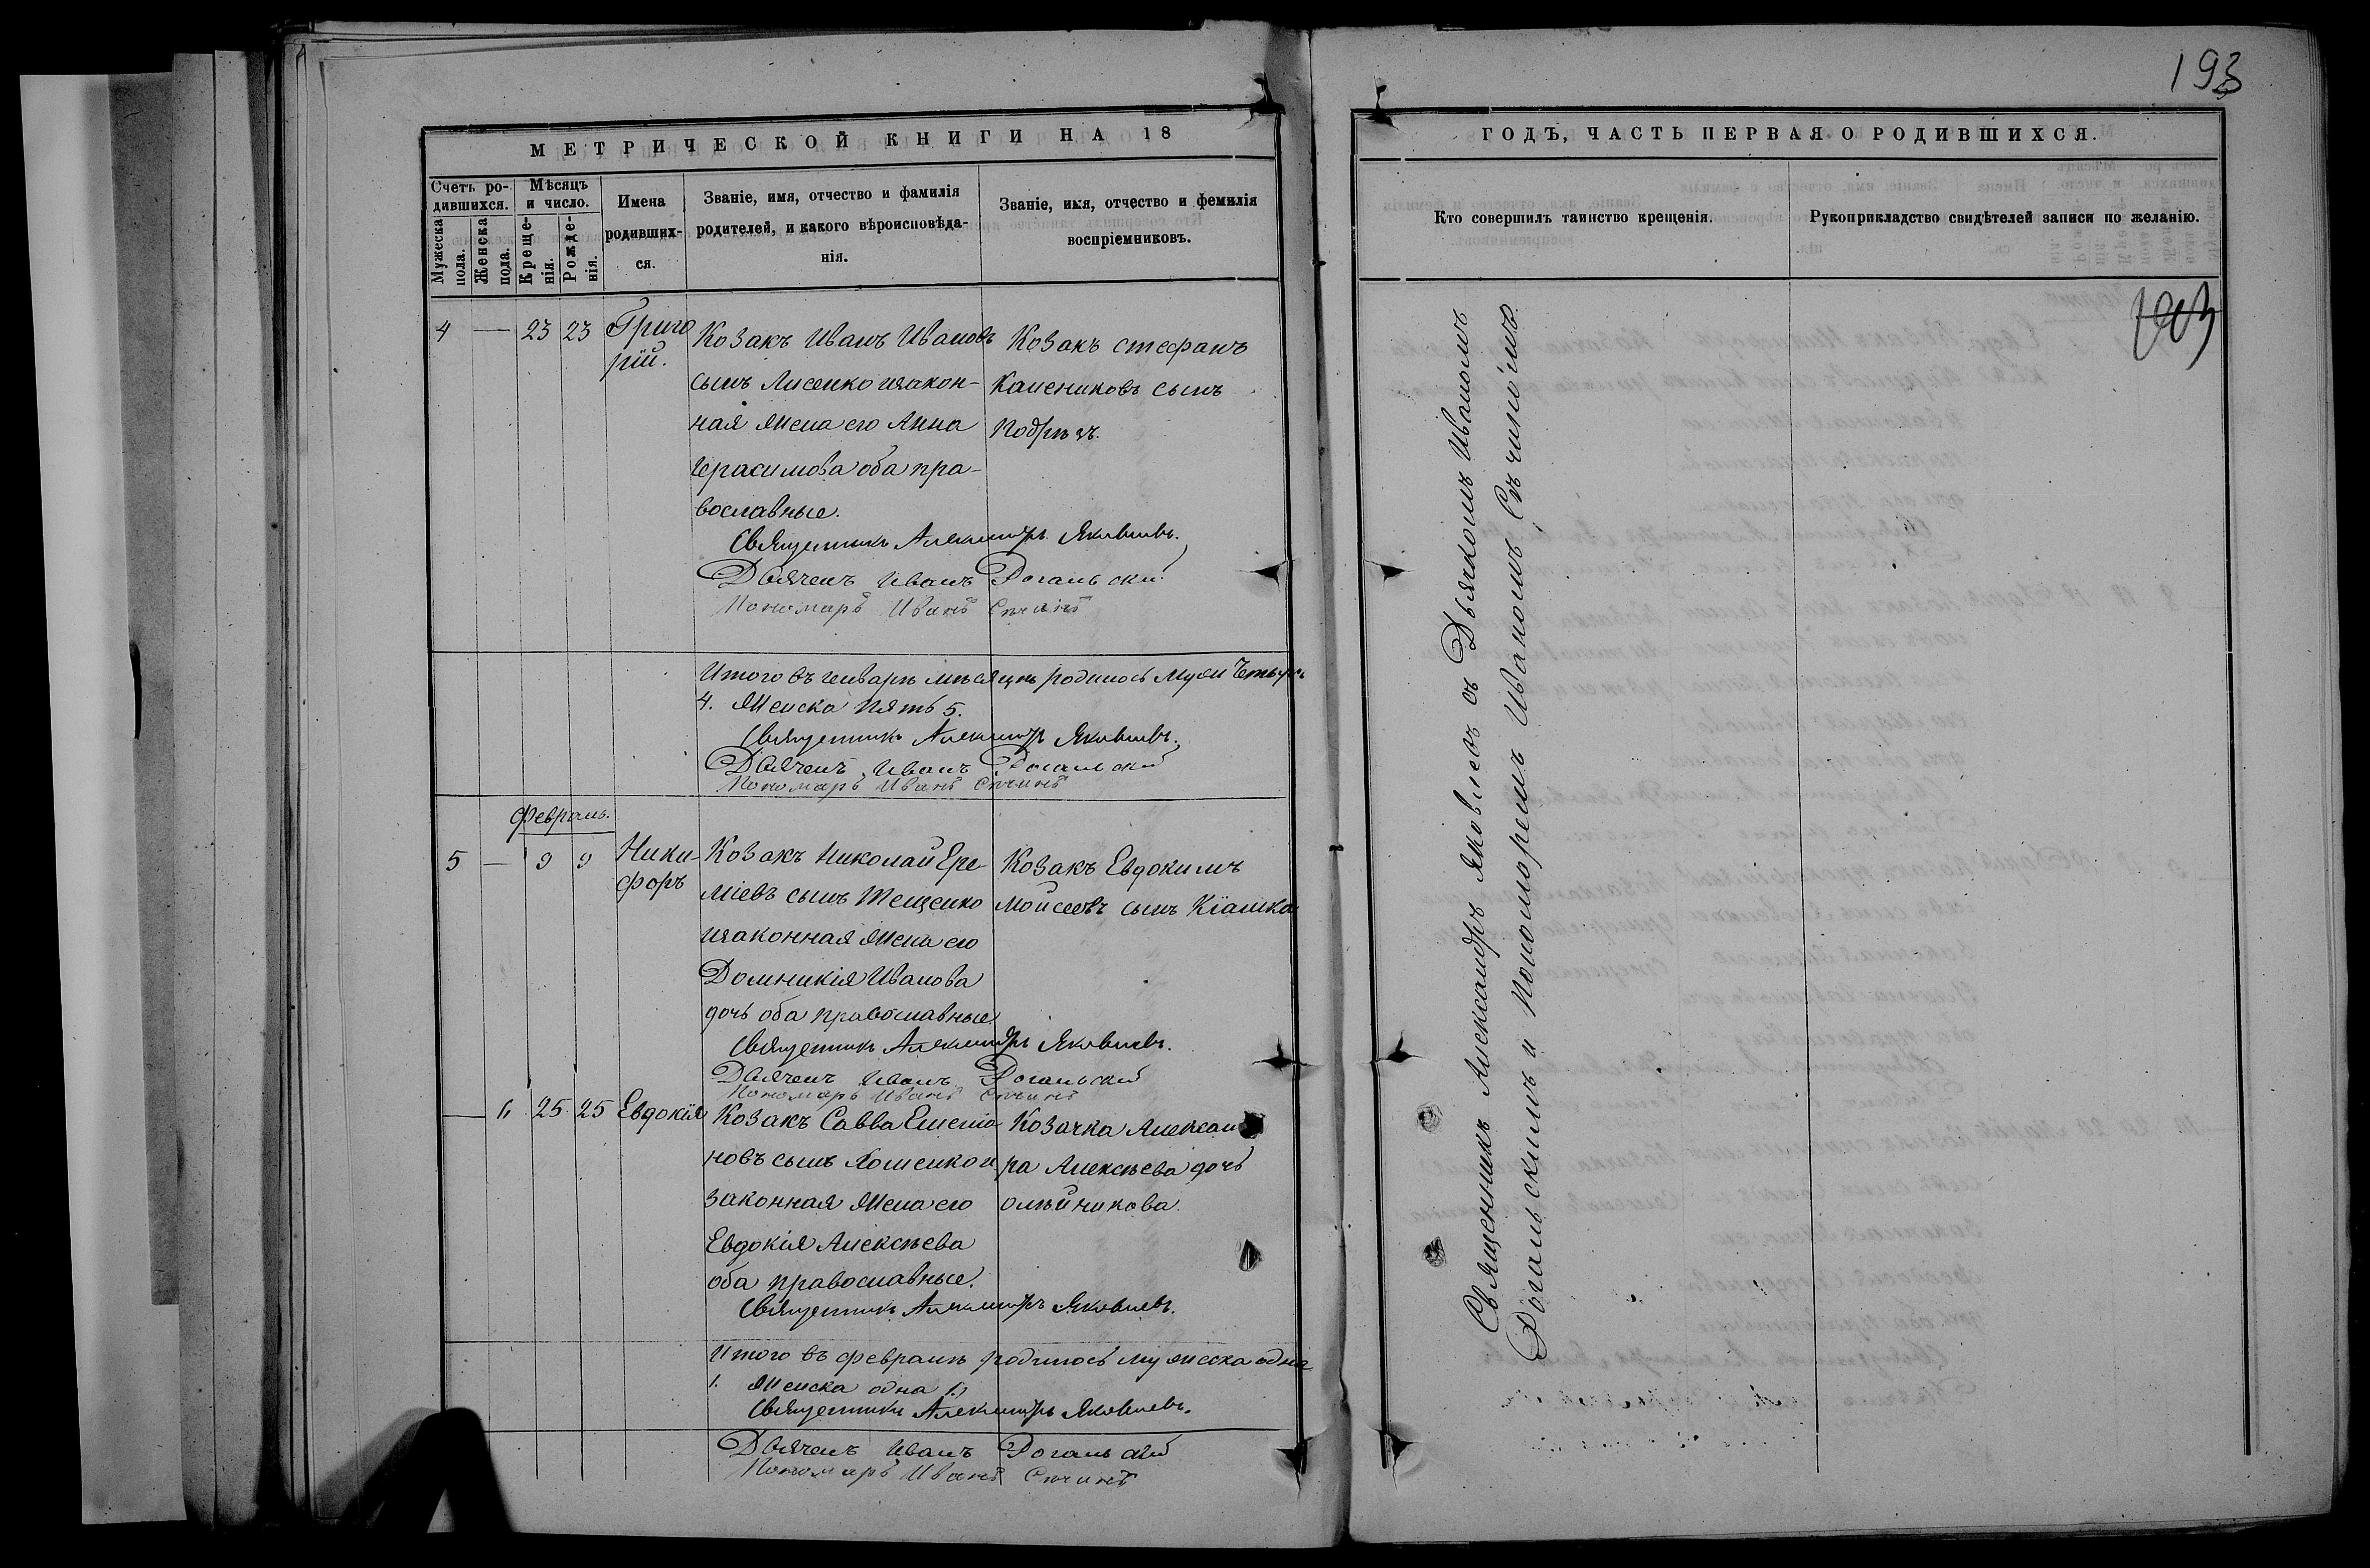 193
МЕТРИЧЕСКОЙ КНИГИ НА 18
Счетъ ро-
дившихся.
Мужеска
пола.
Женска
пола.
Мѣсяцъ
и число.
Креще-
нія.
Рожде-
нія.
Имена
родивших-
ся.
Званіе, имя, отчество и фамилія
родителей, и какого вѣроисповѣда-
нія.
Званіе, имя, отчество и фамилія
воспріемниковъ.
4 — 23 23 Григо
рій.
Козакъ Иванъ Ивановъ
сынъ Лисенко изакон-
ная жена его Анна
Герасимова оба пра-
вославные.
Козакъ Стефанъ
сынъ
Священникъ Александръ Яковлевъ.
Дьячекъ Иванъ Рогальскій
Пономарь Иванъ Сѣчинъ
Итого въ генварѣ мѣсяцѣ родилось муж четыре
4. Женска пять 5.
Священникъ Александръ Яковлевъ.
Дьячекъ Иванъ Рогальскій
Пономарь Иванъ Сѣчинъ
Февраль.
5 — 9 9 Ники-
форъ
Козакъ Николай Ере-
міевъ сынъ Тещенко
изаконная жена его
Домникія Иванова
дочь оба православные.
Козакъ Евдокимъ
Моисеевъ сынъ Кіашко
Священникъ Александръ Яковлевъ.
Дьячекъ Иванъ Рогальскій
Пономарь Иванъ Сѣчинъ
— 6 25 25 Евдокія
Козакъ Савва
новъ сынъ и
законная жена его
Евдокія Алексѣева
оба православные.
Козачка Алексан
ра Алексѣева дочь
Олѣйникова.
Священникъ Александръ Яковлевъ.
Итого въ февралѣ родилось мужеска одна
1. Женска одна 1.
Священникъ Александръ Яковлевъ.
Дьячекъ Иванъ Рогальскій
Пономарь Иванъ Сѣчинъ
ГОДЪ, ЧАСТЬ ПЕРВАЯ О РОДИВШИХСЯ.
Кто совершилъ таинство крещенія.
Рукоприкладство свидѣтелей записи по желанію.
Священникъ Александръ Яковлевъ съ Дьячкомъ Иваномъ
Рогальскимъ и Пономоремъ Иваномъ Сѣчиномъ.